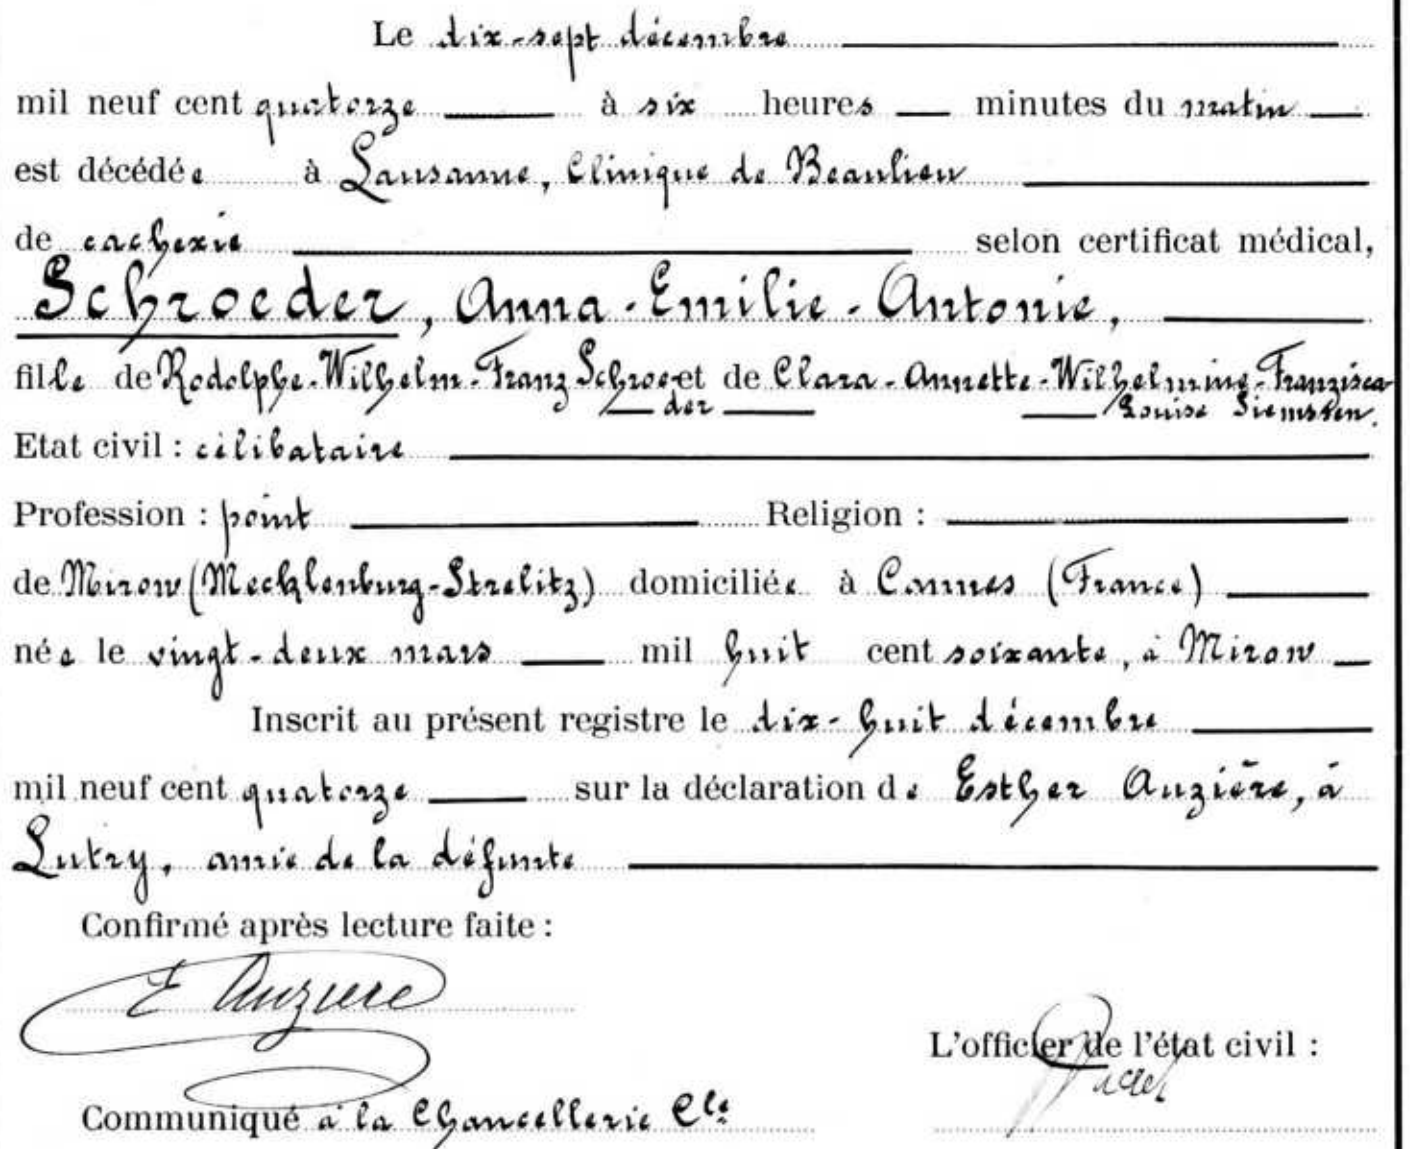 Le dix-sept décembre
mil neuf cent quatorze à six heures — minutes du matin
est décédée à Lausanne, Clinique de Beaulieu
de cachexie selon certificat médical,
Schroeder, Anna-Emilie-Antonie,
fille de Rodolphe-Wilhelm-Franz Schroe- et de Clara-Annette-Wilhelmine-Franzisca
der Louise Siemssen.
Etat civil : célibataire
Profession : point Religion : —
de Mirow (Mecklenburg-Strelitz) domiciliée à Cannes (France)
née le vingt-deux mars mil huit cent soixante, à Mirow
Inscrit au présent registre le dix-huit décembre
mil neuf cent quatorze sur la déclaration de Esther Auzière, à
Lutry, amie de la défunte
Confirmé après lecture faite :
E Auziere
L'officier de l'état civil :
Communiqué à la Chancellerie Cle